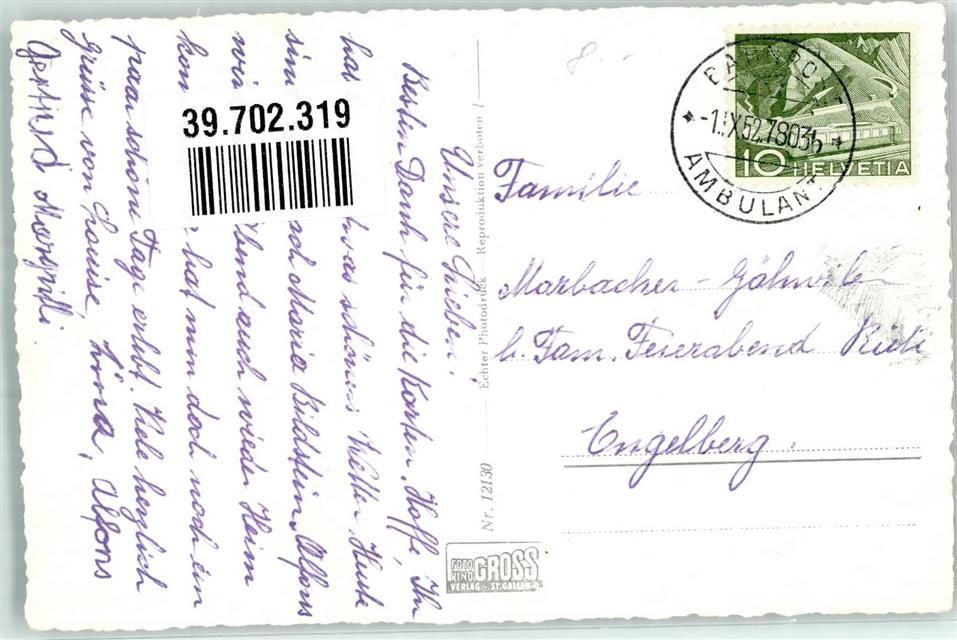 Unsere Lieben!
Besten Dank für die Karten. Hoffe, Ihr
hat schönes Wetter. Heute
sind Maria Bildstein, Alfons
wir Abend auch wieder Heim
kom hat man doch noch ein
paar schöne Tage erlebt. Viele herzlich
Grüsse von Louise, Lina, Alfons
Gertrud
39.702.319
Echter Photodruck — Reproduktion verboten
Nr. 12130
FOTO KINO GROSS
VERLAG - ST. GALLEN-O.
-1.IX.52.
AMBULANT
10 HELVETIA
Familie
Marbacher - Gähwiler
b. Fam. Feierabend Rüti
Engelberg.